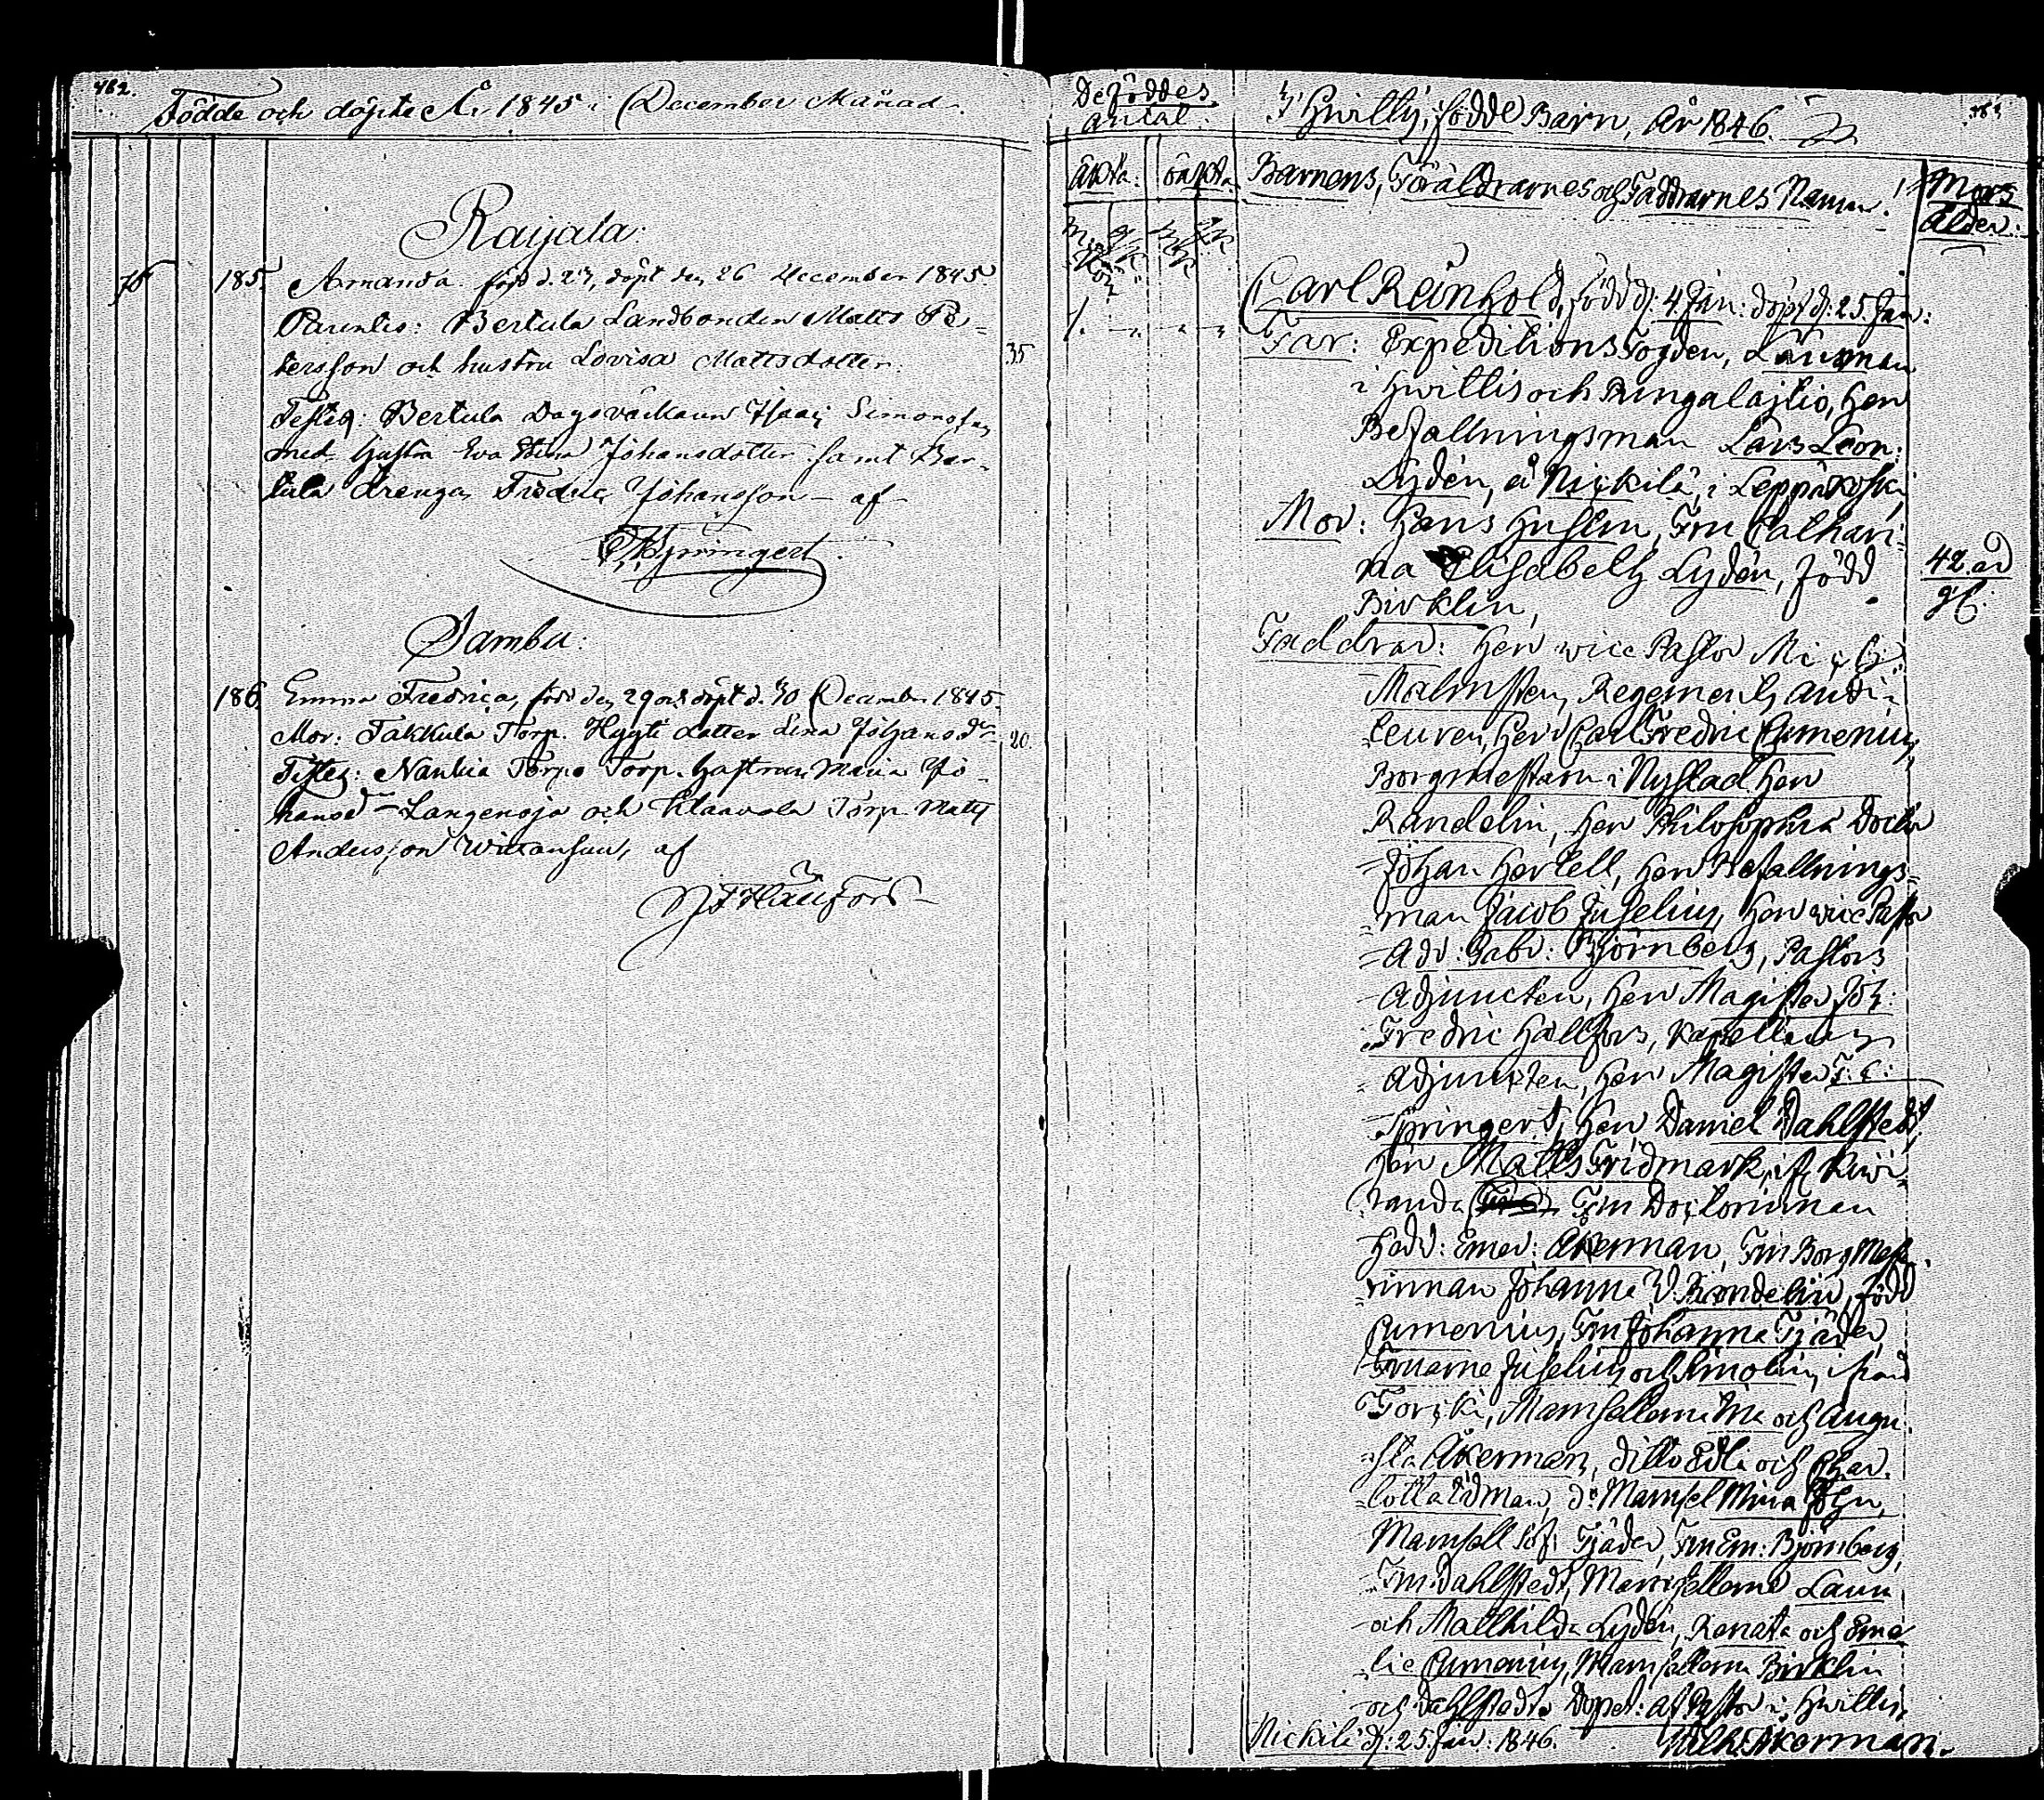 462.
Födde och döpte År 1845 i December Månad.
Raijala:
76
185. Amanda född d. 23, döpt den 26 December 1845.
Parentes: Bertula Landbonden Matts Pe-
tersson och hustru Lovisa Mattsdotter. 35
Testes: Bertula Dagsvärkaren Isaac Simonsson
med hustru Eva Stina Johansdotter samt Ber-
tula drengen Fredric Johansson - af
Springert.
Sambu:
186. Emma Fredrica, född den 29 och döpt d. 30 December 1845.
Mor: Takkula Torp. Hygti dotter Lena Johansdr 20.
Testes: Nankia Torps Torp. hustrun Maria Jo-
hansdr Langensjo och Klaavola Torp. Matts
Andersson Wiitansuu, af
J F Hällfors
463
De föddes
antal.
I Hwittis, födde Barn, År 1846.
äkta. oäkta
Barnens, Föräldrarnes och Faddrarnes Namn.
Mors
ålder:
Carl Reinhold, född d: 4 Jan: döpt d: 25. Jan:
1. " " "
Far: Expeditions Fogden, Länsman
i Hwittis och Pungalajtio, Herr
Befallningsman Lars Leon:
Lydén, å Nickilä, i Leppäkoski
Mor: Hans Hustru, Fru Cathari-
na Elisabeth Lydén, född
42 år
Birklin,
gl:
Faddrar: Herr vice Pastor Mich:
Malmsten, Regements Audi-
teuren, Herr Carl Fredric Cumenius,
Borgmästarn i Nystad Herr
Randelin, Herr Philosophiæ Doctor
Johan Hertell, Herr Befallnings-
man Jacob Juselius, Herr vice Past
Adv: Gabr: Björnberg, Pastors
Adjuncten, Herr Magister Joh:
Fredric Hällfors, Kapellans
Adjuncten, Herr Magister F: E:
Springert, Herr Daniel Dahlstedt,
Herr Matts Fridmark, if
Fru Doctorinnan
Hedv: Emer: Åkerman, Fru Borg Mest
rinnan Johanna V. Randelin, född
Cumenius, Fru Johanna Tjäder,
Fruarne Juselius och Amolin, i från
Forski, Mamsellerne Ida och Augu-
sta Åkerman, ditto Edla och Char-
lotta Idman, do Mamsel Mina
Mamsell Sof: Tjäder, Fru Em: Björnberg,
Fru Dahlstedt, Mamsellerne Laura
och Mathilda Lydén, Renata och Eme-
lie Cumenius, Mamsellerne Birklin
och Dahlstedt. Döpet: af Pastor i Hwittis,
Nickilä d: 25 Jan: 1846. Wilh: Åkerman.